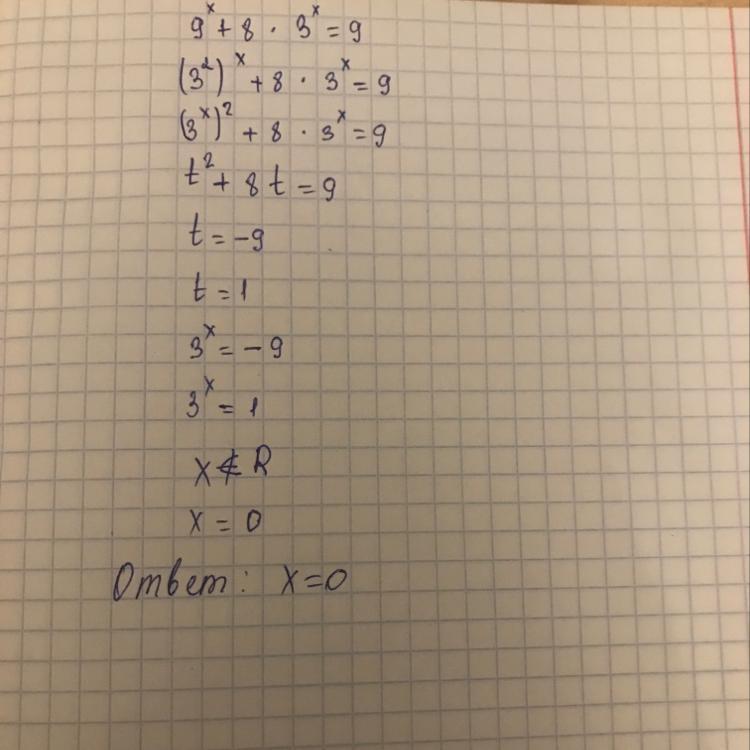 9ˣ + 8 · 3ˣ = 9
(3²)ˣ + 8 · 3ˣ = 9
(3ˣ)² + 8 · 3ˣ = 9
t² + 8t = 9
t = -9
t = 1
3ˣ = -9
3ˣ = 1
x ∉ R
x = 0
Ответ: x = 0